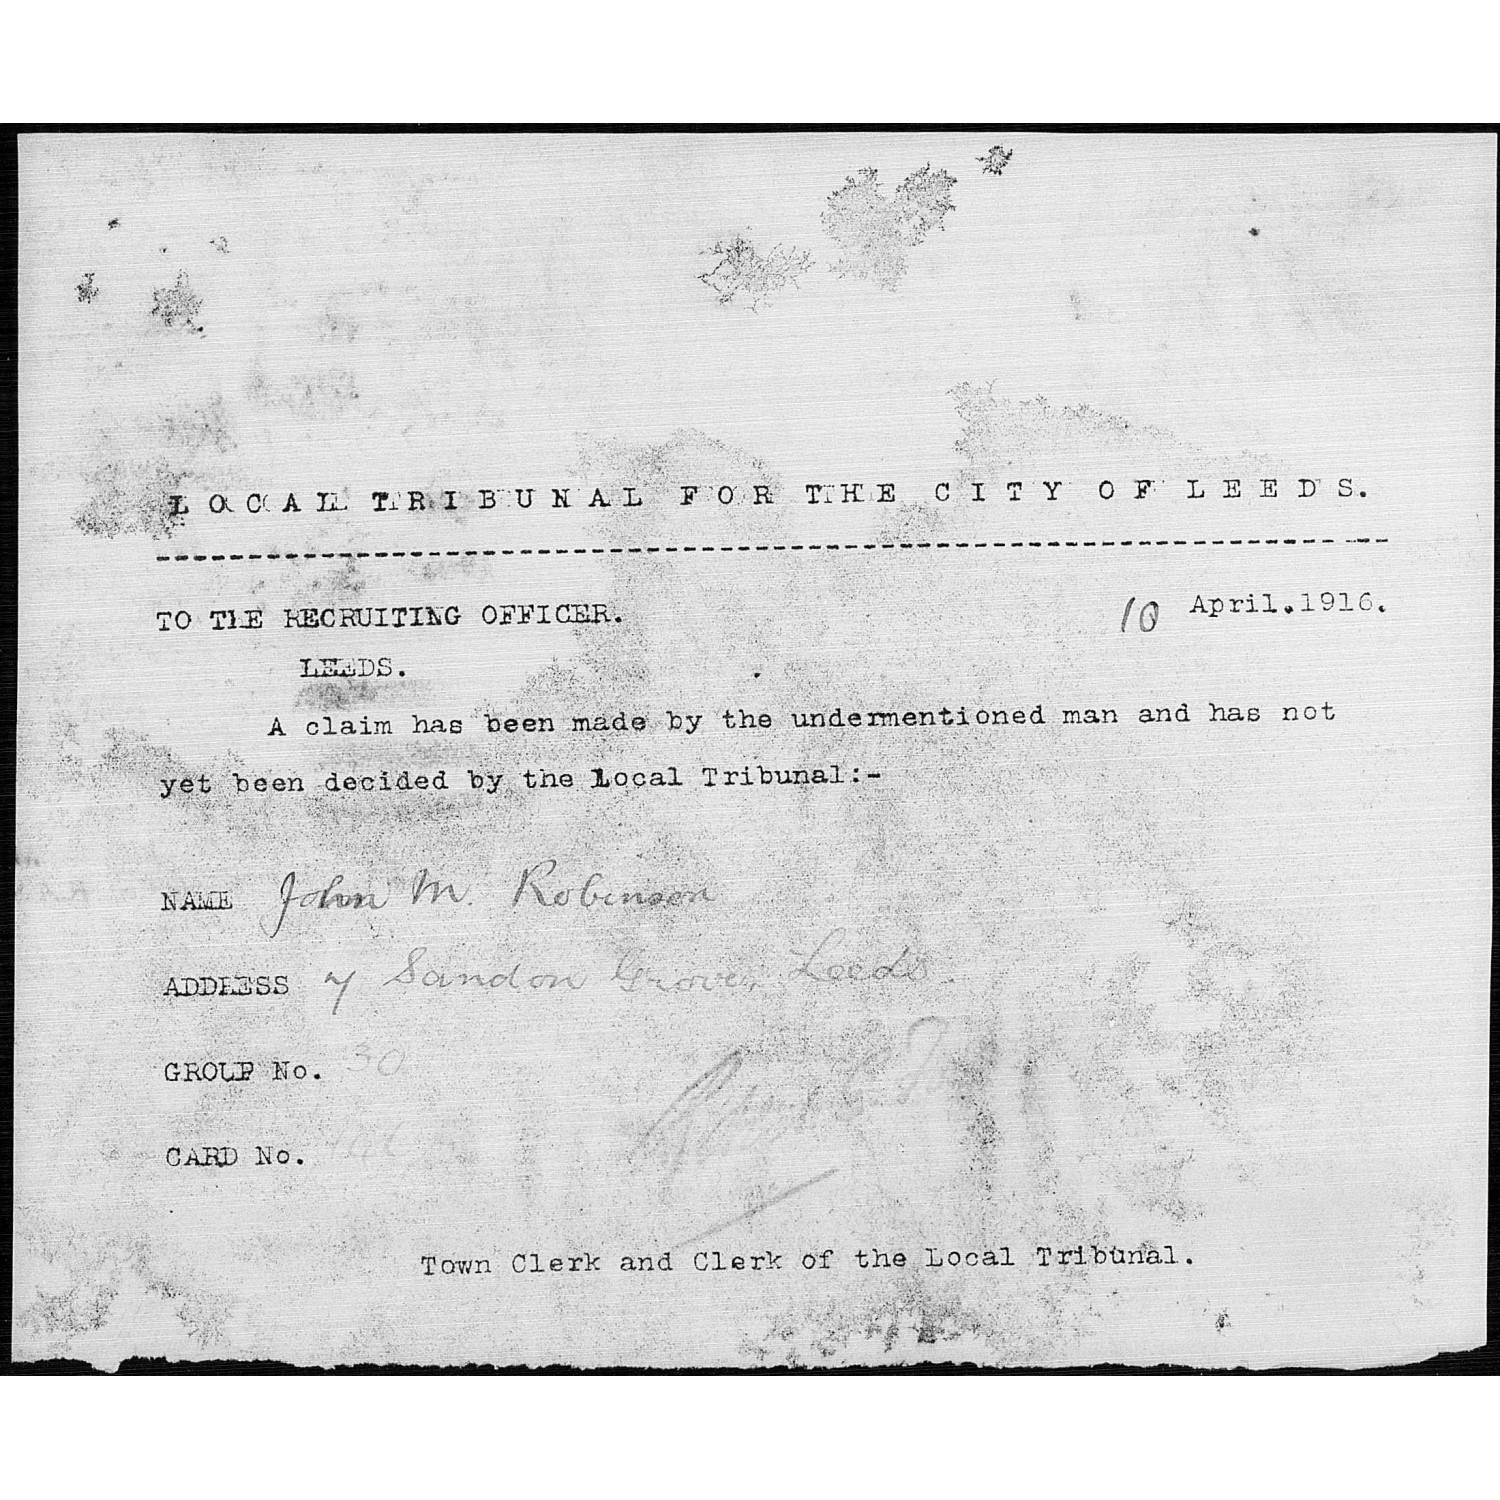 LOCAL TRIBUNAL FOR THE CITY OF LEEDS.
TO THE RECRUITING OFFICER.
10 April.1916.
LEEDS.
A claim has been made by the undermentioned man and has not
yet been decided by the Local Tribunal:-
NAME John M. Robinson
ADDRESS 7 Sandon Grove, Leeds
GROUP No. 30
CARD No.
Town Clerk and Clerk of the Local Tribunal.